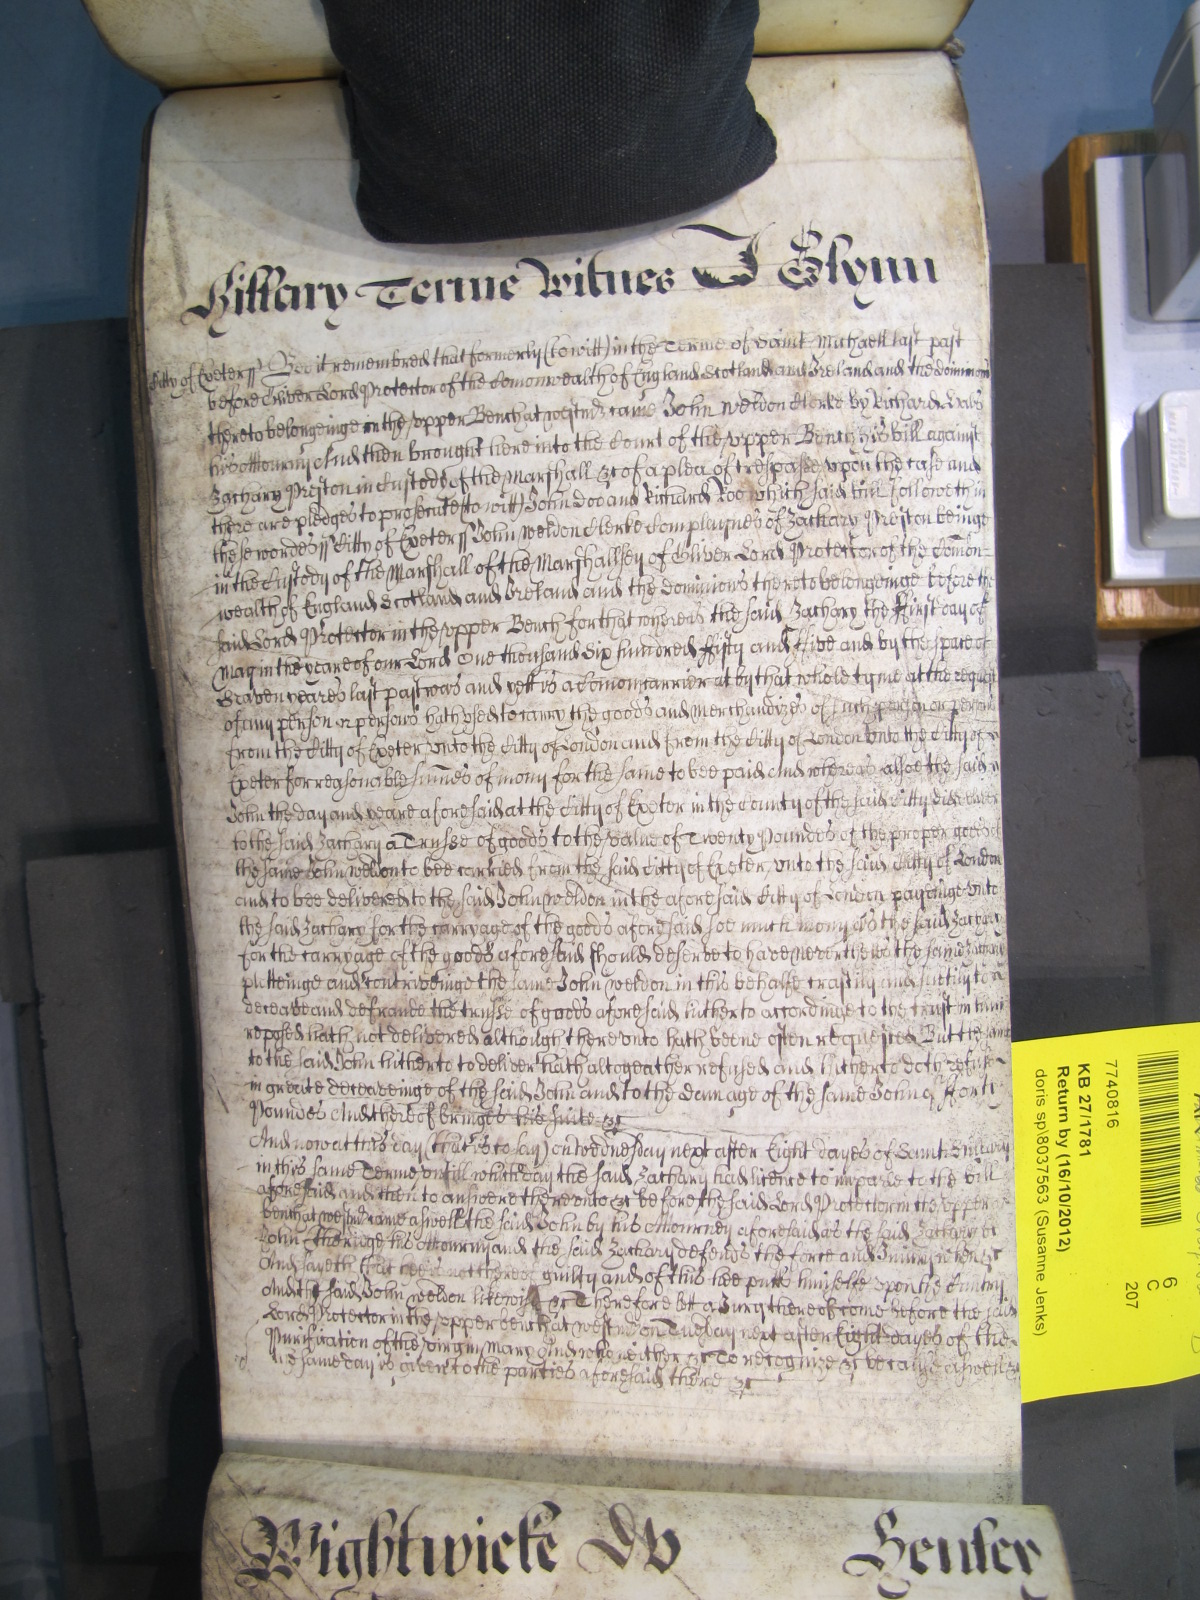 Hillary Terme Witnes J Glynn
Citty of Exeter ss Bee it remembred that formerly (to witt) in the Terme of Saint Michaell last past
before Oliver Lord Protector of the Comonwealth of England Scotland and Ireland and the dominions
thereto belongeinge in the upper Bench at Westmr came John Weldon Clerke by Richard
his Attourny And then brought here into the Court of the upper Bench his bill against
Zachary Preston in Custody of the Marshall &c of a plea of trespasse upon the case and
there are pledges to prosecute to witt John Doo and Richard Roo which said bill followeth in
these wordes ss Citty of Exeter ss John Weldon Clerke Complaynes of Zachary Preston beinge
in the Custody of the Marshall of the Marshallsey of Oliver Lord Protector of the Comon-
wealth of England Scotland and Ireland and the dominions thereto belongeinge before the
said Lord Protector in the upper Bench for that whereas the said Zachary the ffirst day of
May in the yeare of our Lord One thousand Six hundred ffifty and ffive and by the space of
Seaven yeares last past was and yett is a Comon carrier and by that whole tyme at the request
of any person or persons hath used to carry the goods and merchandizes of such person or persons
from the Citty of Exeter unto the Citty of London and from the Citty of London unto the Citty of
Exeter for reasonable summes of mony for the same to bee paid And whereas alsoe the said
John the day and yeare aforesaid at the Citty of Exeter in the County of the said Citty did deliver
to the said Zachary a Trusse of goods to the value of Twenty Poundes of the proper goods of
the same John Weldon to bee carried from the said Citty of Exeter unto the said Citty of London
and to bee delivered to the said John Weldon in the aforesaid Citty of London payeinge unto
the said Zachary for the carryage of the goods aforesaid soe much mony as the said Zachary
for the carryage of the goods aforesaid should deserve to have neverthelesse the said Zachary
plotteinge and contriveinge the same John Weldon in this behalfe craftily and subtilly to
deceave and defraude the trusse of goods aforesaid hitherto accordinge to the trust in him
reposed hath not delivered although thereunto hath beene often requested But the same
to the said John hitherto to deliver hath altogeather refused and hitherto doth refuse
in greate deceaveinge of the said John and to the damage of the same John of fforty
Poundes And thereof bringes this suite &c
And now at this day (that is to say) on Wednesday next after Eight dayes of Saint Hillary
in this same Terme untill which day the said Zachary had licence to imparle to the bill
aforesaid and then to answere thereunto &c before the said Lord Protector in the upper
bench at Westmr came aswell the said John by his Attourney aforesaid as the said Zachary by
John Etheridge his Attourny and the said Zachary defends the force and Iniury when &c
And sayeth that hee is not thereof guilty and of this hee putts himselfe upon the Cuntry
And the said John Weldon likewise &c Therefore lett a Jury thereof come before the said
Lord Protector in the upper bench at Westmr on Tuesday next after Eight dayes of the
Purification of the virgin mary And who neither &c To recognize &c because aswell &c
the same day is given to the parties aforesaid there &c
Wightwicke Dv Henley
7740816
KB 27/1781
Return by (16/10/2012)
doris sp\8037563 (Susanne Jenks)
6
C
207